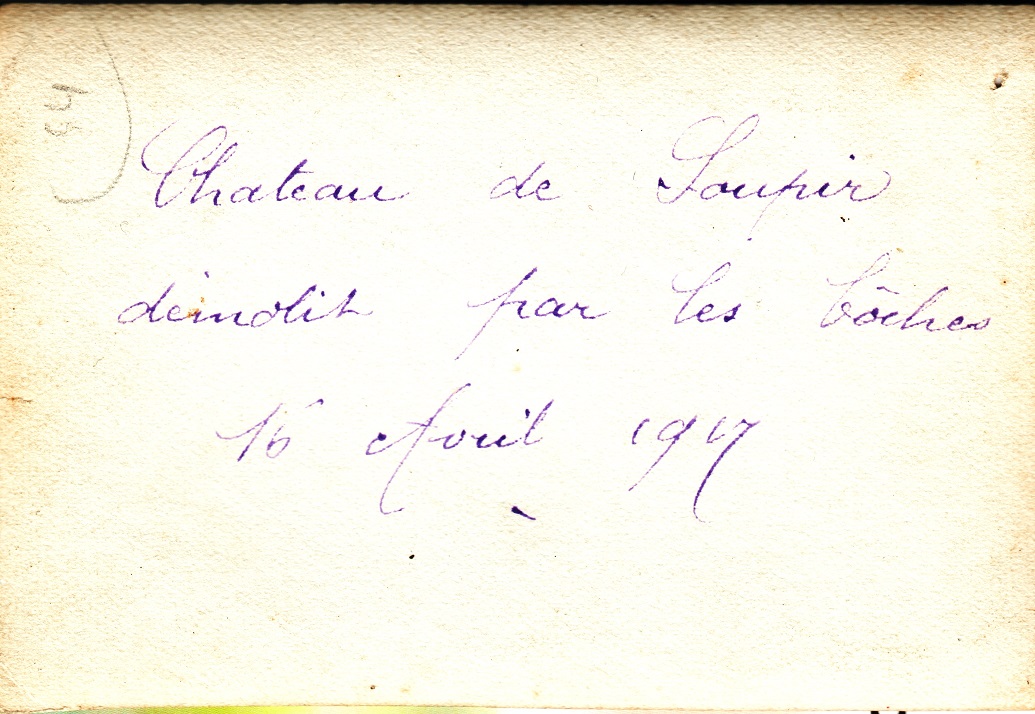 Chateau de Soupir
démolit par les bôches
16 Avril 1917